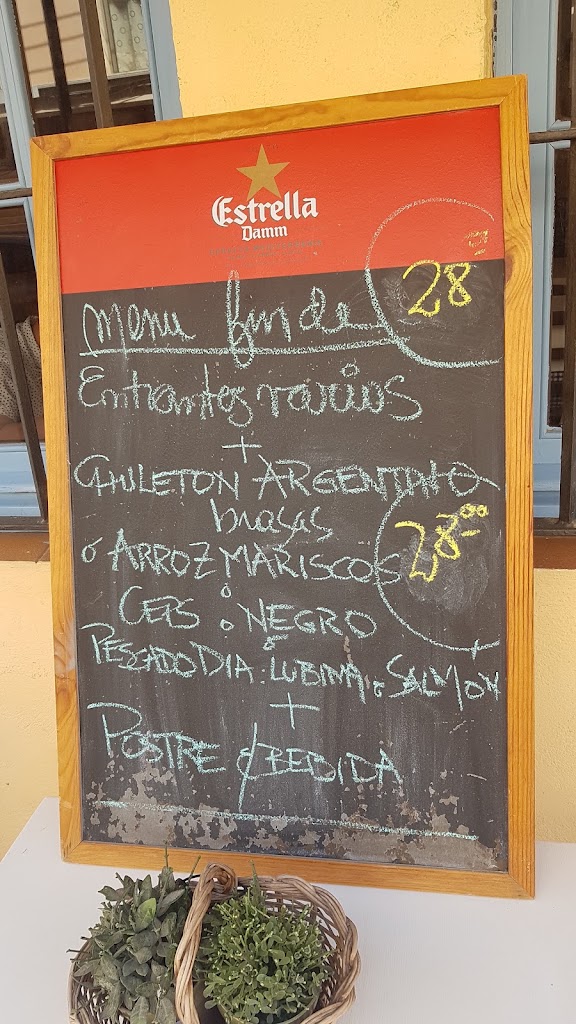 Estrella
Damm
28
Menu finde
Entrantes varios
+
CHULETON ARGENTINO
brasas
28,00
o ARROZ MARISCOS
CEPS o NEGRO
o
PESCADO DIA: LUBINA o SALMON
+
POSTRE & BEBIDA